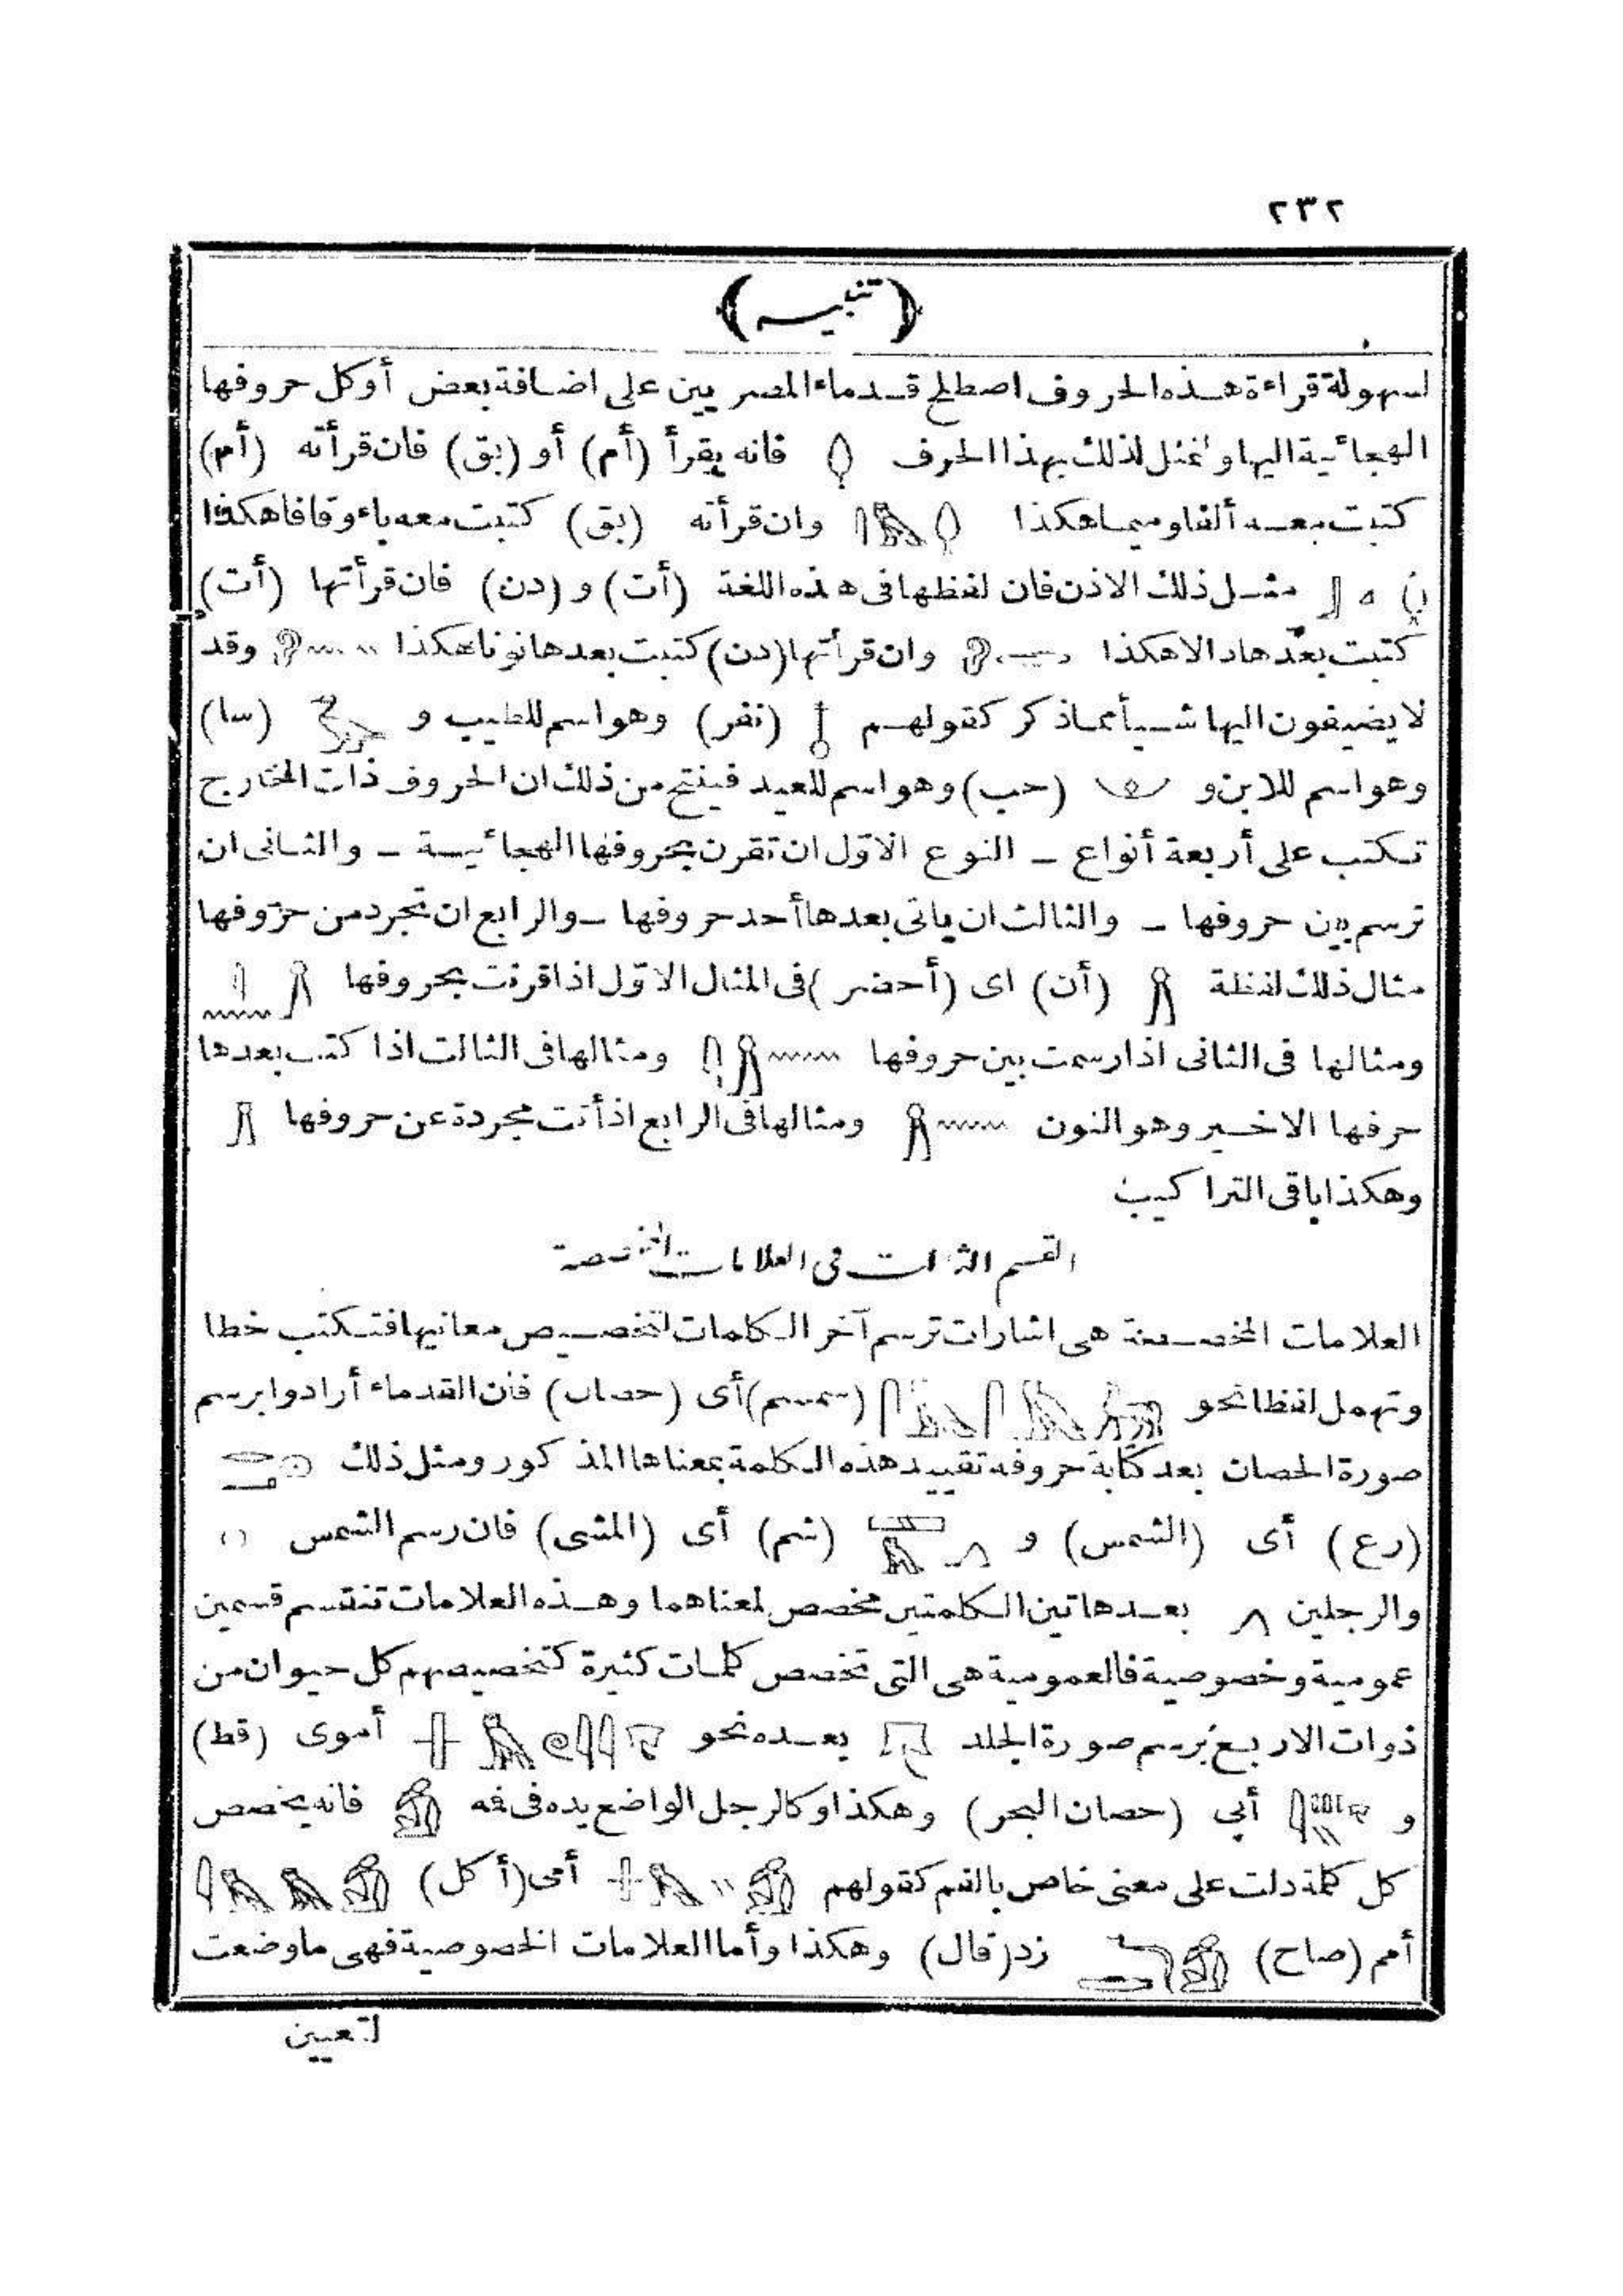 ٢٣٢
(تنبيه)
لسهولة قراءة هذه الحروف اصطلح قدماء المصريين على اضافة بعض أوكل حروفها
الهجائية اليها ولنمثل لذلك بهذا الحرف فانه يقرأ (أم) أو (بق) فان قرأته (أم)
كتبت معه ألفا وميما هكذا وان قرأته (بق) كتبت معه باء وقافا هكذا
مثل ذلك الاذن فان لفظها فى هذه اللغة (أت) و (دن) فان قرأتها (أت)
كتبت بعدها دالا هكذا وان قرأتها (دن) كتبت بعدها نونا هكذا وقد
لا يضيفون اليها شيأ مما ذكر كقولهم (نفر) وهو اسم للطيب و (سا)
وهو اسم للابن و (حب) وهو اسم للعيد فينتج من ذلك ان الحروف ذات المخارج
تكتب على أربعة أنواع – النوع الاوّل ان تقرن بحروفها الهجائية – والثانى ان
ترسم بين حروفها – والثالث ان ياتى بعدها أحد حروفها – والرابع ان تجرد من حروفها
مثال ذلك لفظة (أن) اى (أحضر) فى المثال الاوّل اذا قرنت بحروفها
ومثالها فى الثانى اذا رسمت بين حروفها ومثالها فى الثالث اذا كتب بعدها
حرفها الاخير وهو النون ومثالها فى الرابع اذ أتت مجردة عن حروفها
وهكذا باقى التراكيب
القسم الثالث فى العلامات المخصصة
العلامات المخصصة هى اشارات ترسم آخر الكلمات لتخصيص معانيها فتكتب خطا
وتهمل لفظا نحو (سمسم) أى (حصان) فان القدماء أرادوا برسم
صورة الحصان بعد كتابة حروفه تقييد هذه الكلمة بمعناها المذكور ومثل ذلك
(رع) أى (الشمس) و (شم) أى (المشى) فان رسم الشمس
والرجلين بعد هاتين الكلمتين مخصص لمعناهما وهذه العلامات تنقسم قسمين
عمومية وخصوصية فالعمومية هى التى تخصص كلمات كثيرة كتخصيصهم كل حيوان من
ذوات الاربع برسم صورة الجلد بعده نحو أموى (قط)
و أبى (حصان البحر) وهكذا وكالرجل الواضع يده فى فه فانه يخصص
كل كلمة دلت على معنى خاص بالفم كقولهم أمى (أكل)
أمم (صاح) زد (قال) وهكذا وأما العلامات الخصوصية فهى ما وضعت
لتعيين